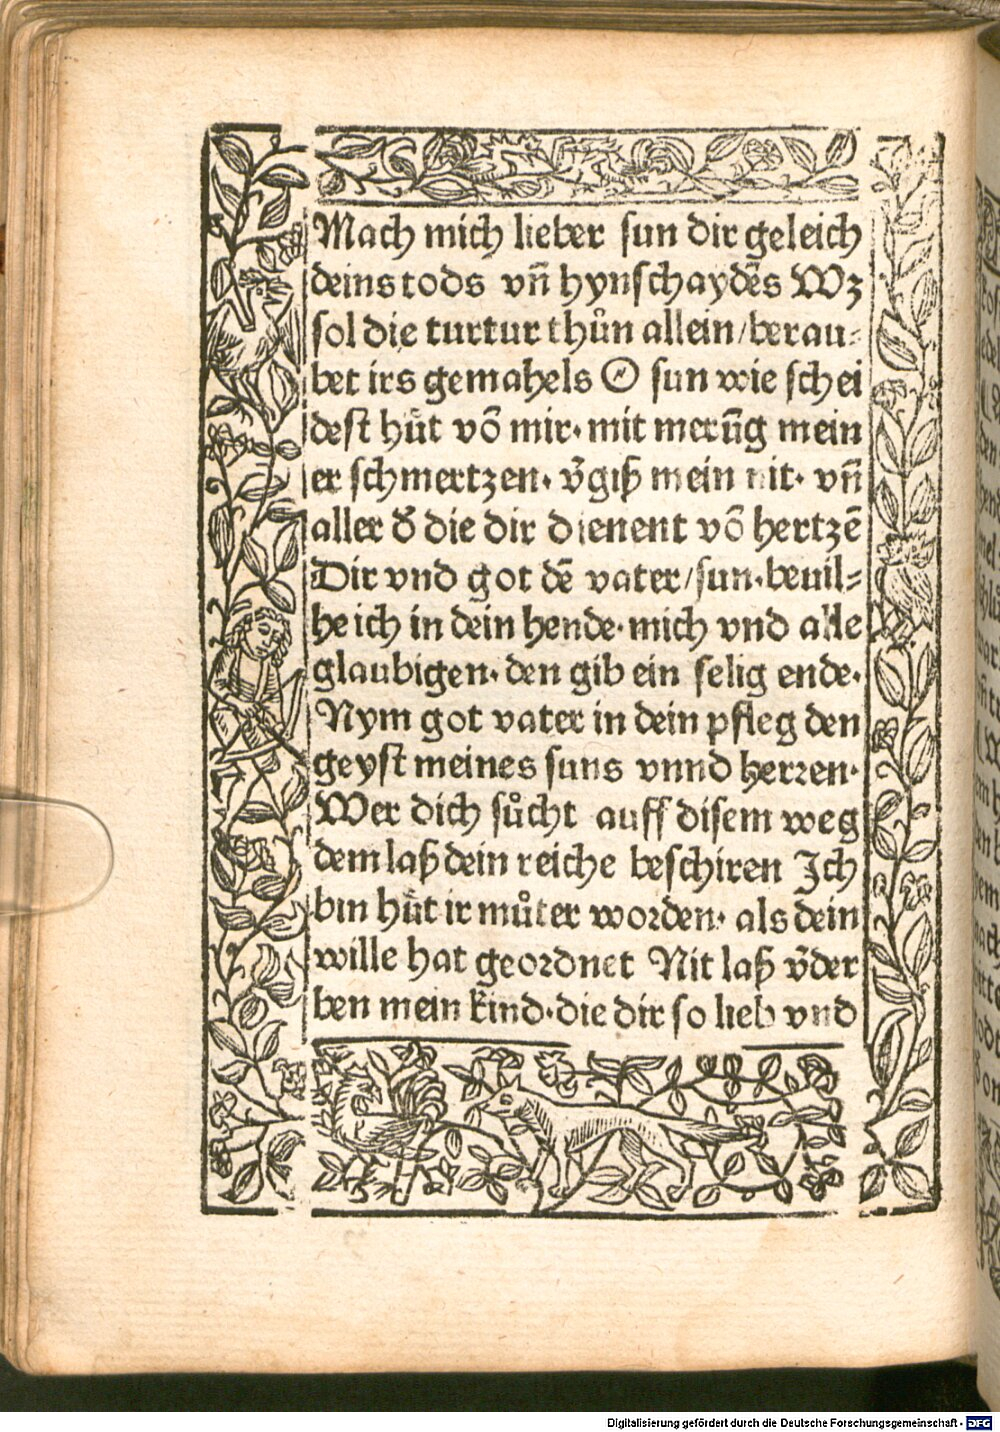 Mach mich lieber sun dir geleich
deins tods vn̄ hynschaydēs Wz
sol die turtur thůn allein/berau⸗
bet irs gemahels O sun wie schei
dest hüt võ mir· mit merūg mein
er schmertzen· v̄giß mein nit· vn̄
aller d̄ die dir dienent võ hertzē
Dir vnd got dē vater/sun·beuil⸗
he ich in dein hende·mich vnd alle
glaubigen·den gib ein selig ende·
Nym got vater in dein pfleg den
geyst meines suns vnnd herren·
Wer dich sůcht auff disem weg
dem laß dein reiche beschiren Ich
bin hüt ir můter worden· als dein
wille hat geordnet Nit laß v̄der
ben mein kind·die dir so lieb vnd
Digitalisierung gefördert durch die Deutsche Forschungsgemeinschaft - DFG